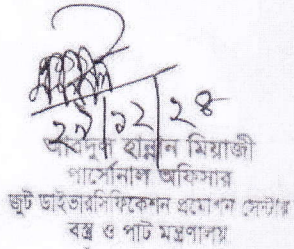 ২৯/১২/২৪
আবদুল হান্নান মিয়াজী
পার্সোনাল অফিসার
জুট ডাইভারসিফিকেশন প্রমোশন সেন্টার
বস্ত্র ও পাট মন্ত্রণালয়